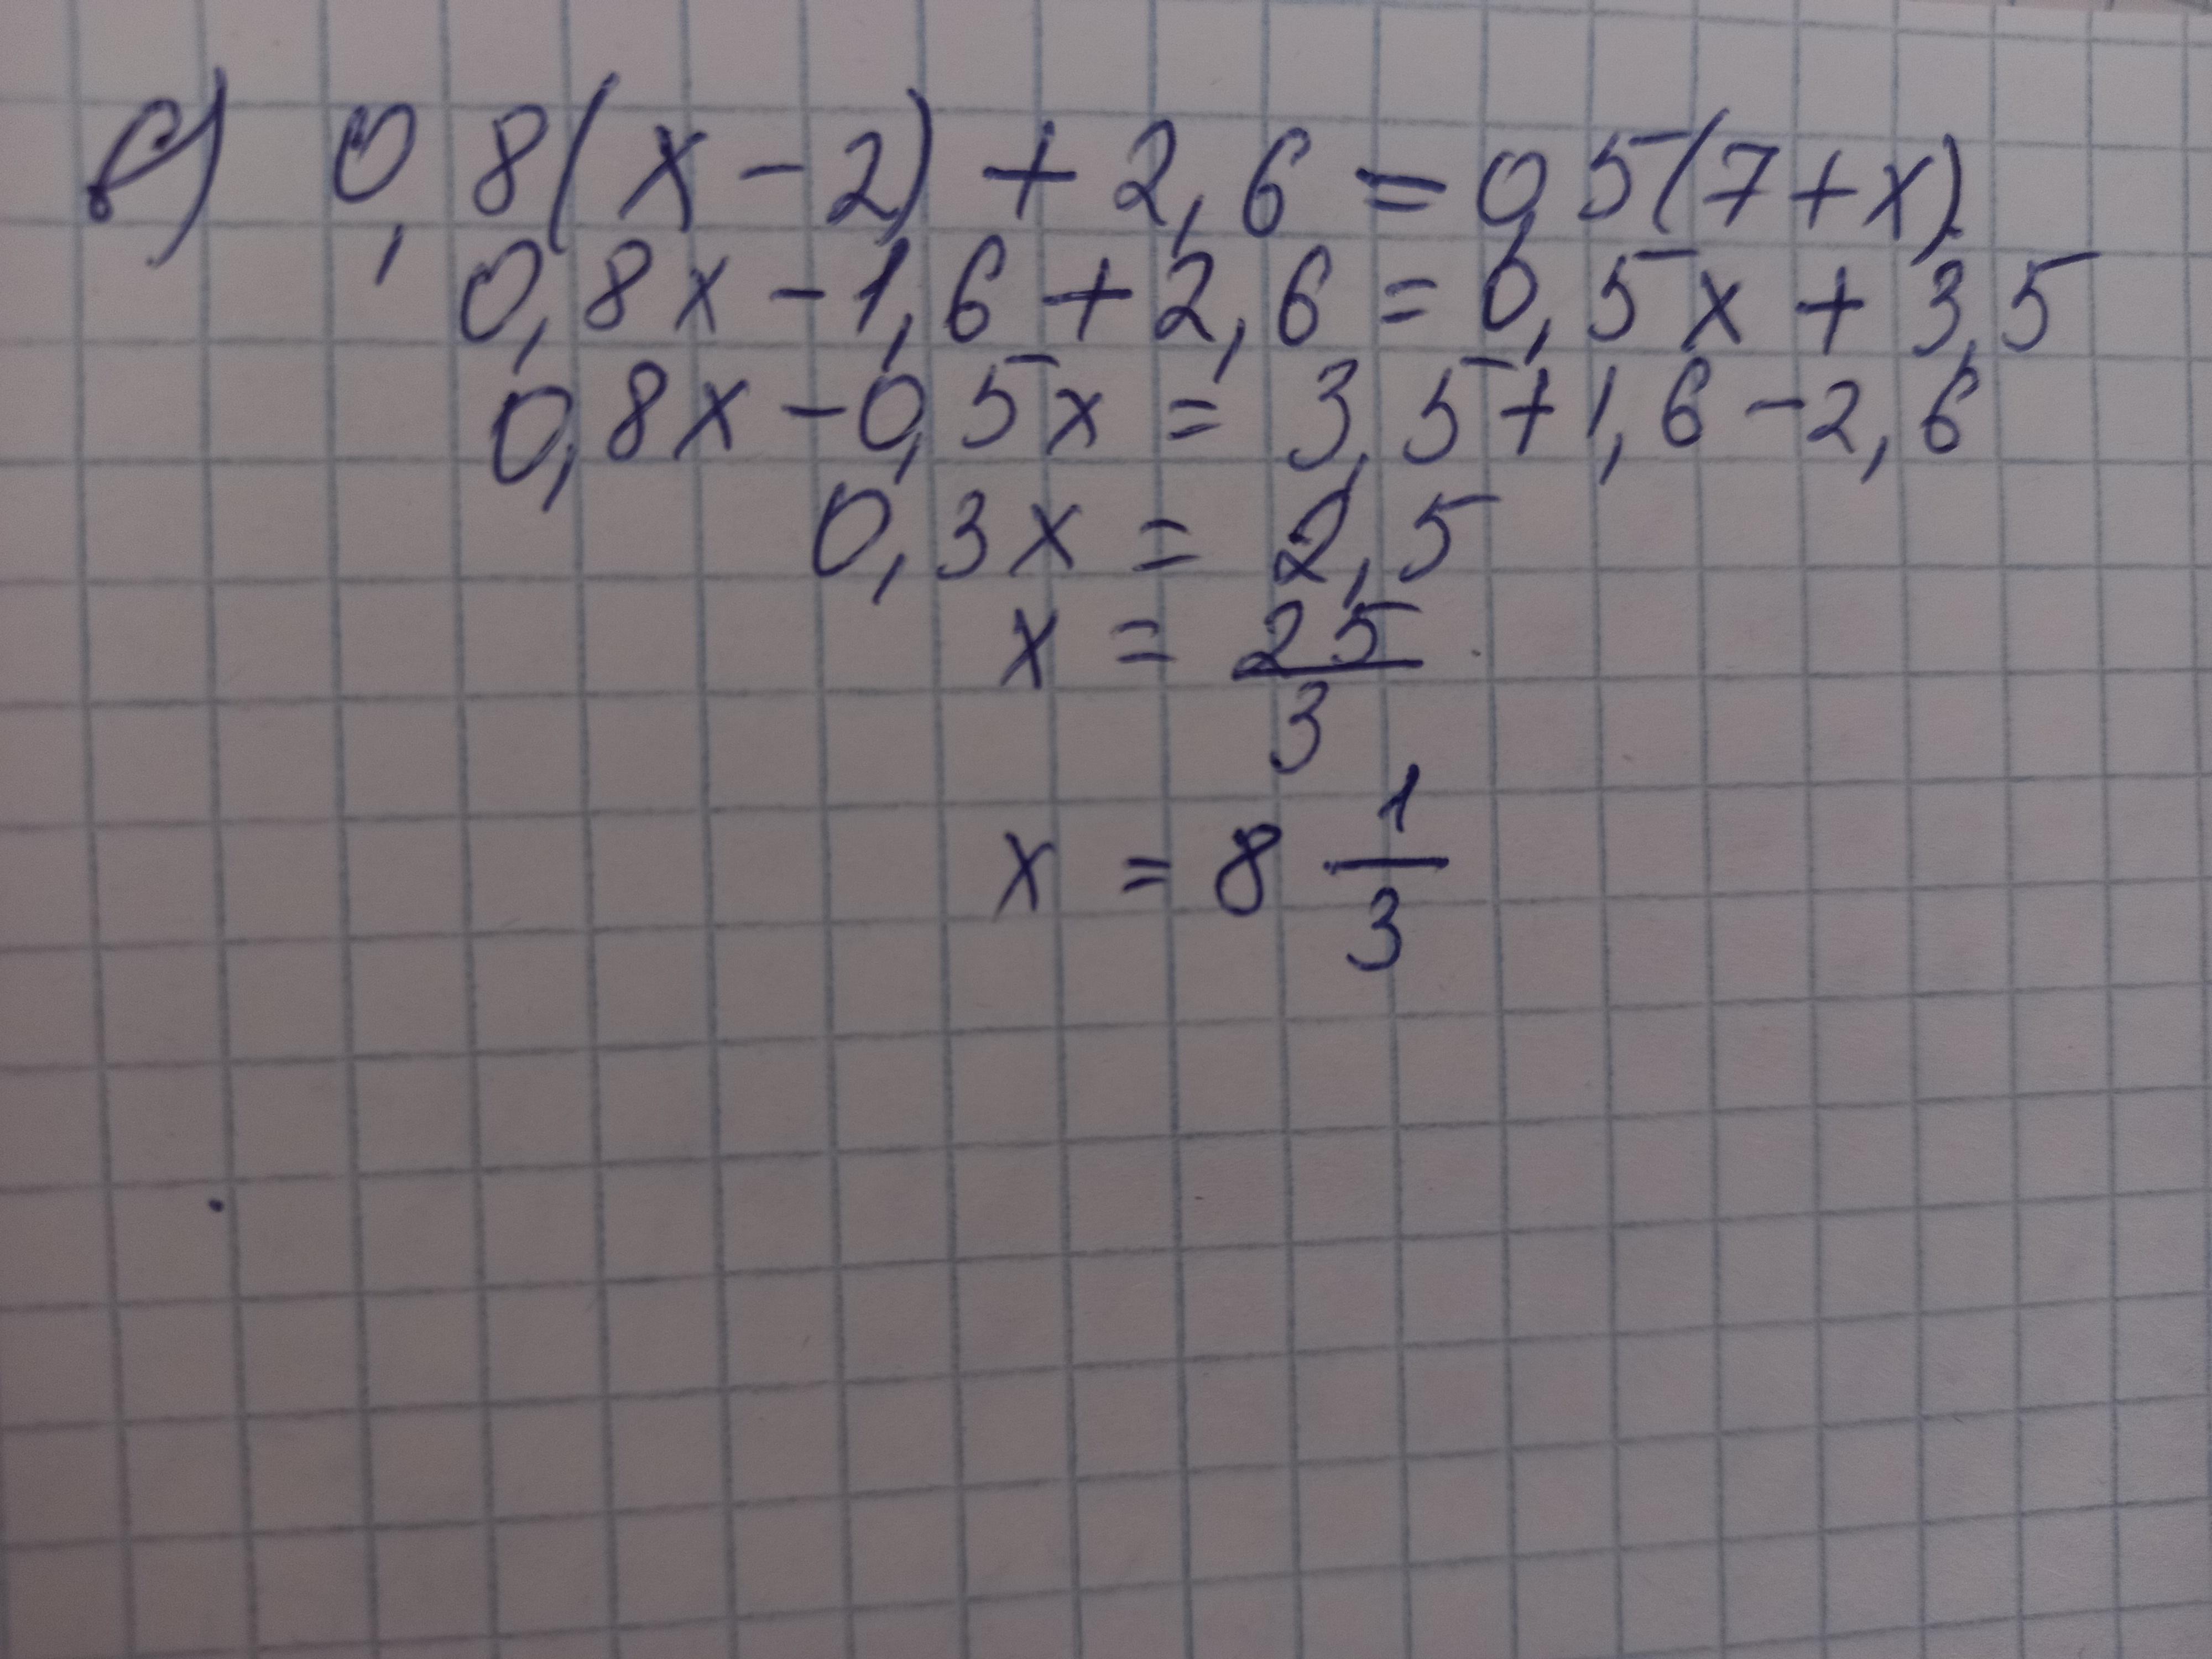 в) 0,8(x-2)+2,6=0,5(7+x)
0,8x-1,6+2,6=0,5x+3,5
0,8x-0,5x=3,5+1,6-2,6
0,3x=2,5
x=25/3
x=8 1/3